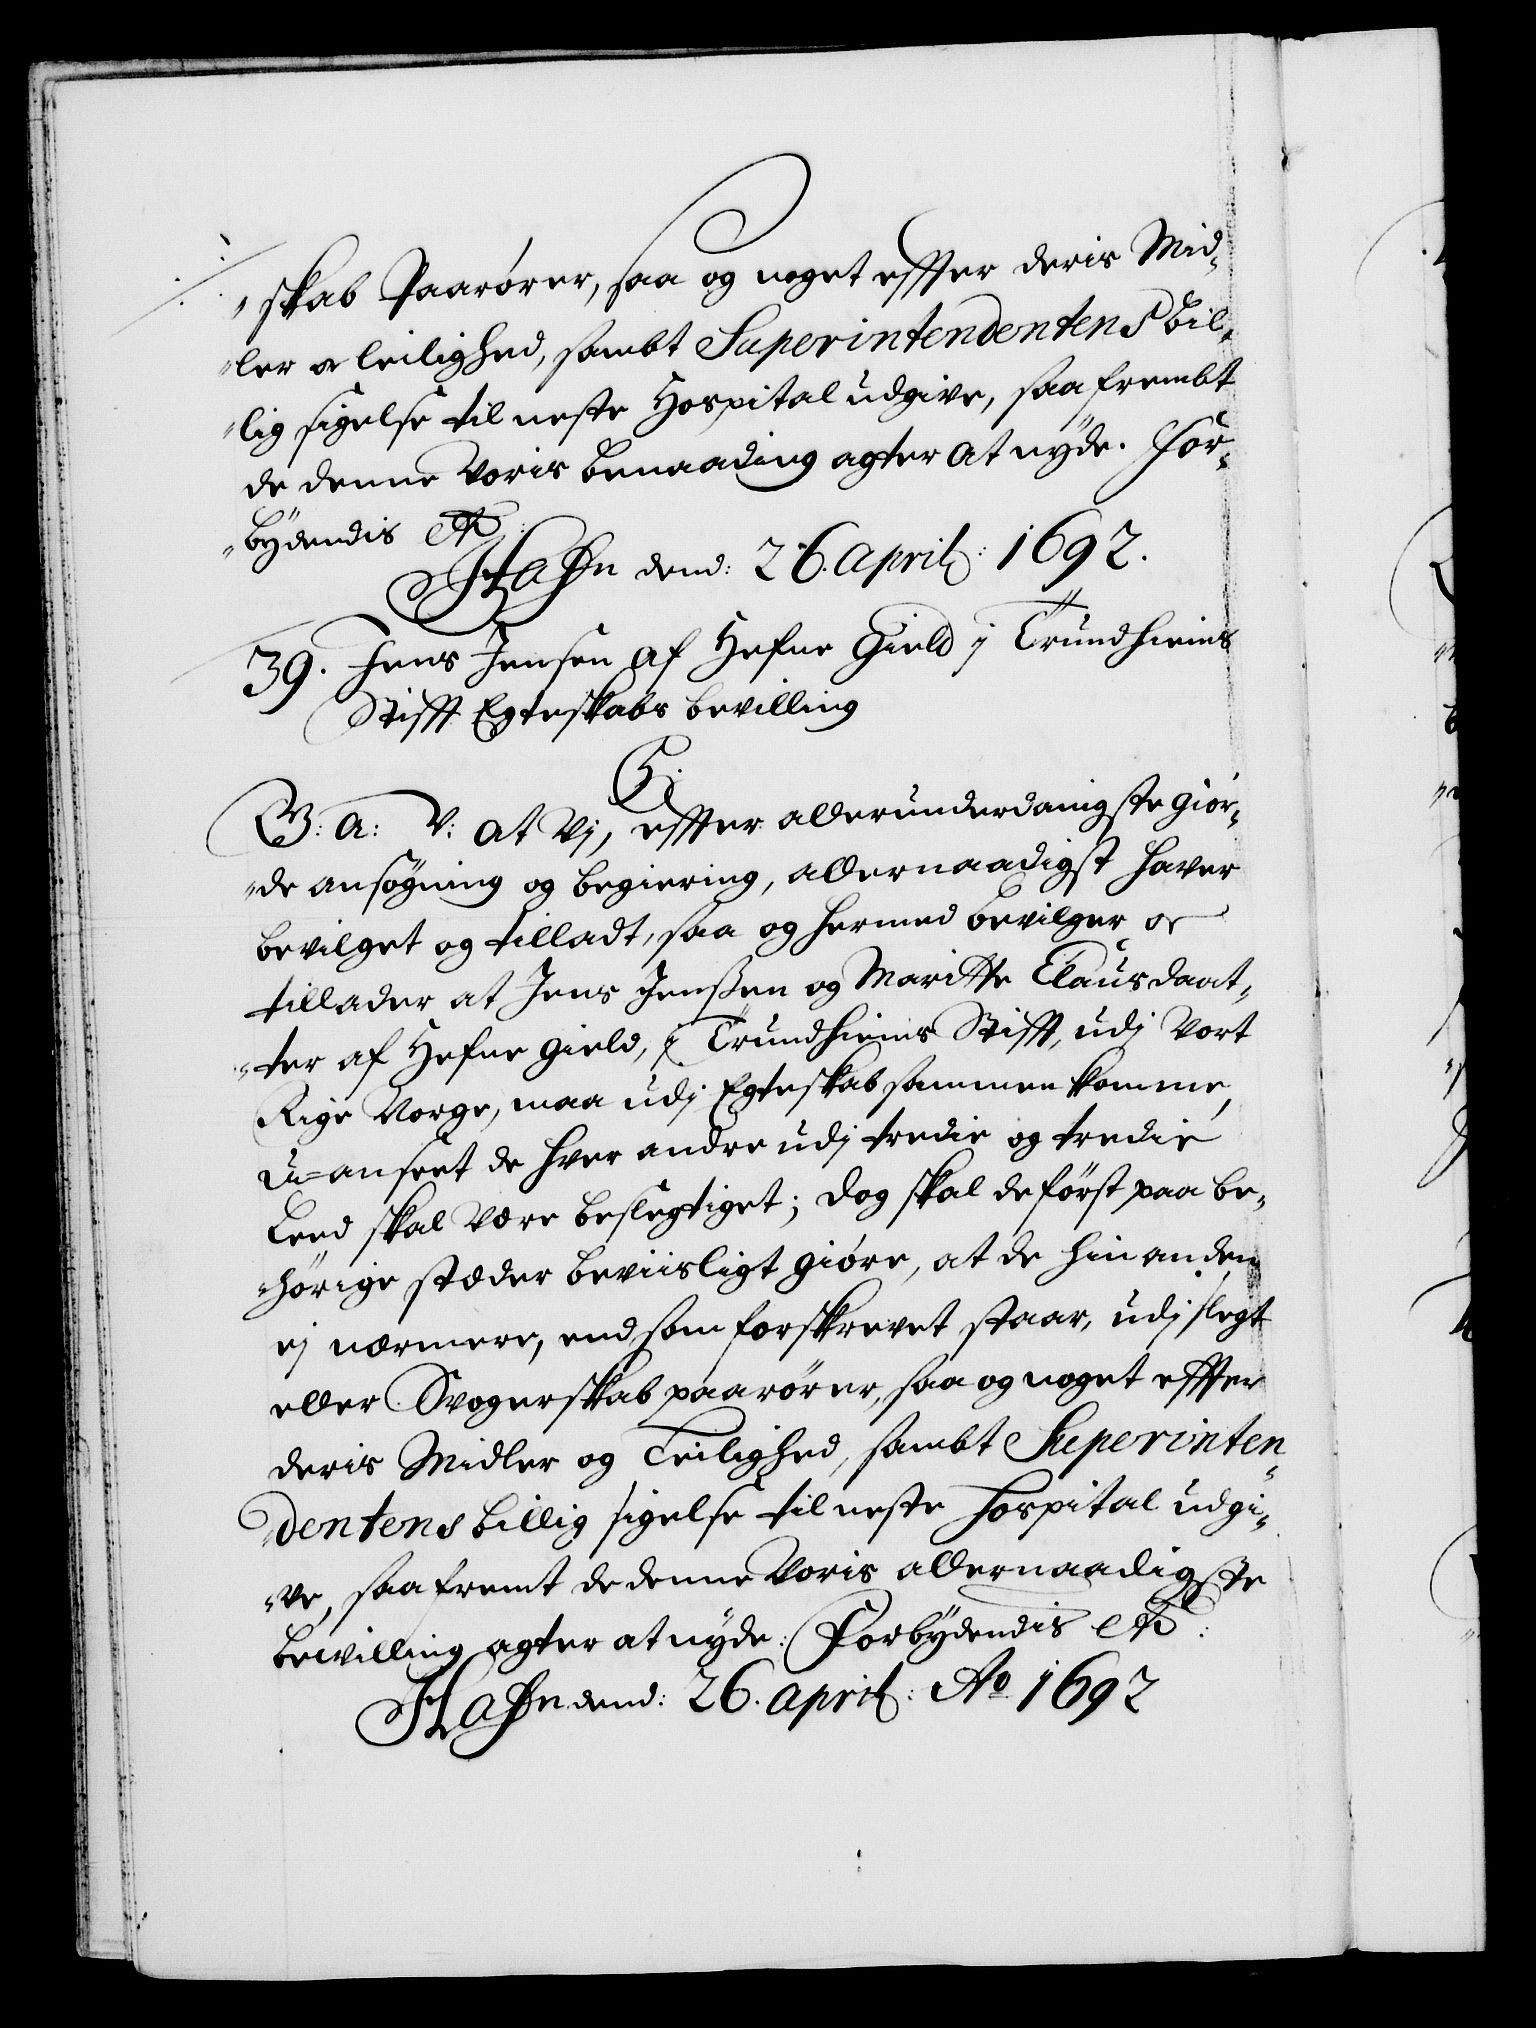 skab Paarører, saa og noget effter deris Mid„
„ler og leilighed, sambt Superintendentens bil„
„lig sigelse til neste Hospital udgive, saafrembt
de denne Voris benaading agter at nyde. For„
„bydendis etc:
Hafn dend: 26. April: 1692.
39. Jens Jensen af Hefne Gield j Trundhiems
Stifft Egteskabs bevilling
C5.
G: A: V: at Vj, effter allerunderdanigste giør„
„de ansøgning og begiering, allernaadigst hafver
bevilget og tilladt, saa og hermed bevilger og
tillader at Jens Jenssen og Maritte Clausdaat„
„ter af Hefne gield, j Trundhiems Stifft, udj Vort
Rige Norge, maa udj Egteskab sammen komme,
u=anseet de hver andre udj tredie og tredie
Leed skal være beslegtiget; dog skal de først paa be„
„hørige stæder beviisligt giøre, at de hin anden
ej nærmere, end som forskrevet staar, udj slegt
eller Svogerskab paarører, saa og noget effter
deris Midler og Leilighed, sambt Superinten„
„dentens billig sigelse til neste Hospital udgi„
„ve, saafremt de denne Voris allernaadigste
bevilling agter at nyde: Forbydendis etc:
Hafn dend: 26. April: Ao 1692